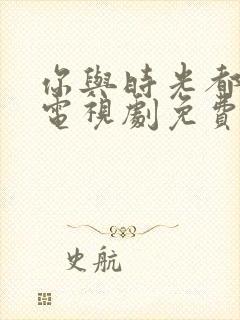 你與時光都
電視劇免費
史航